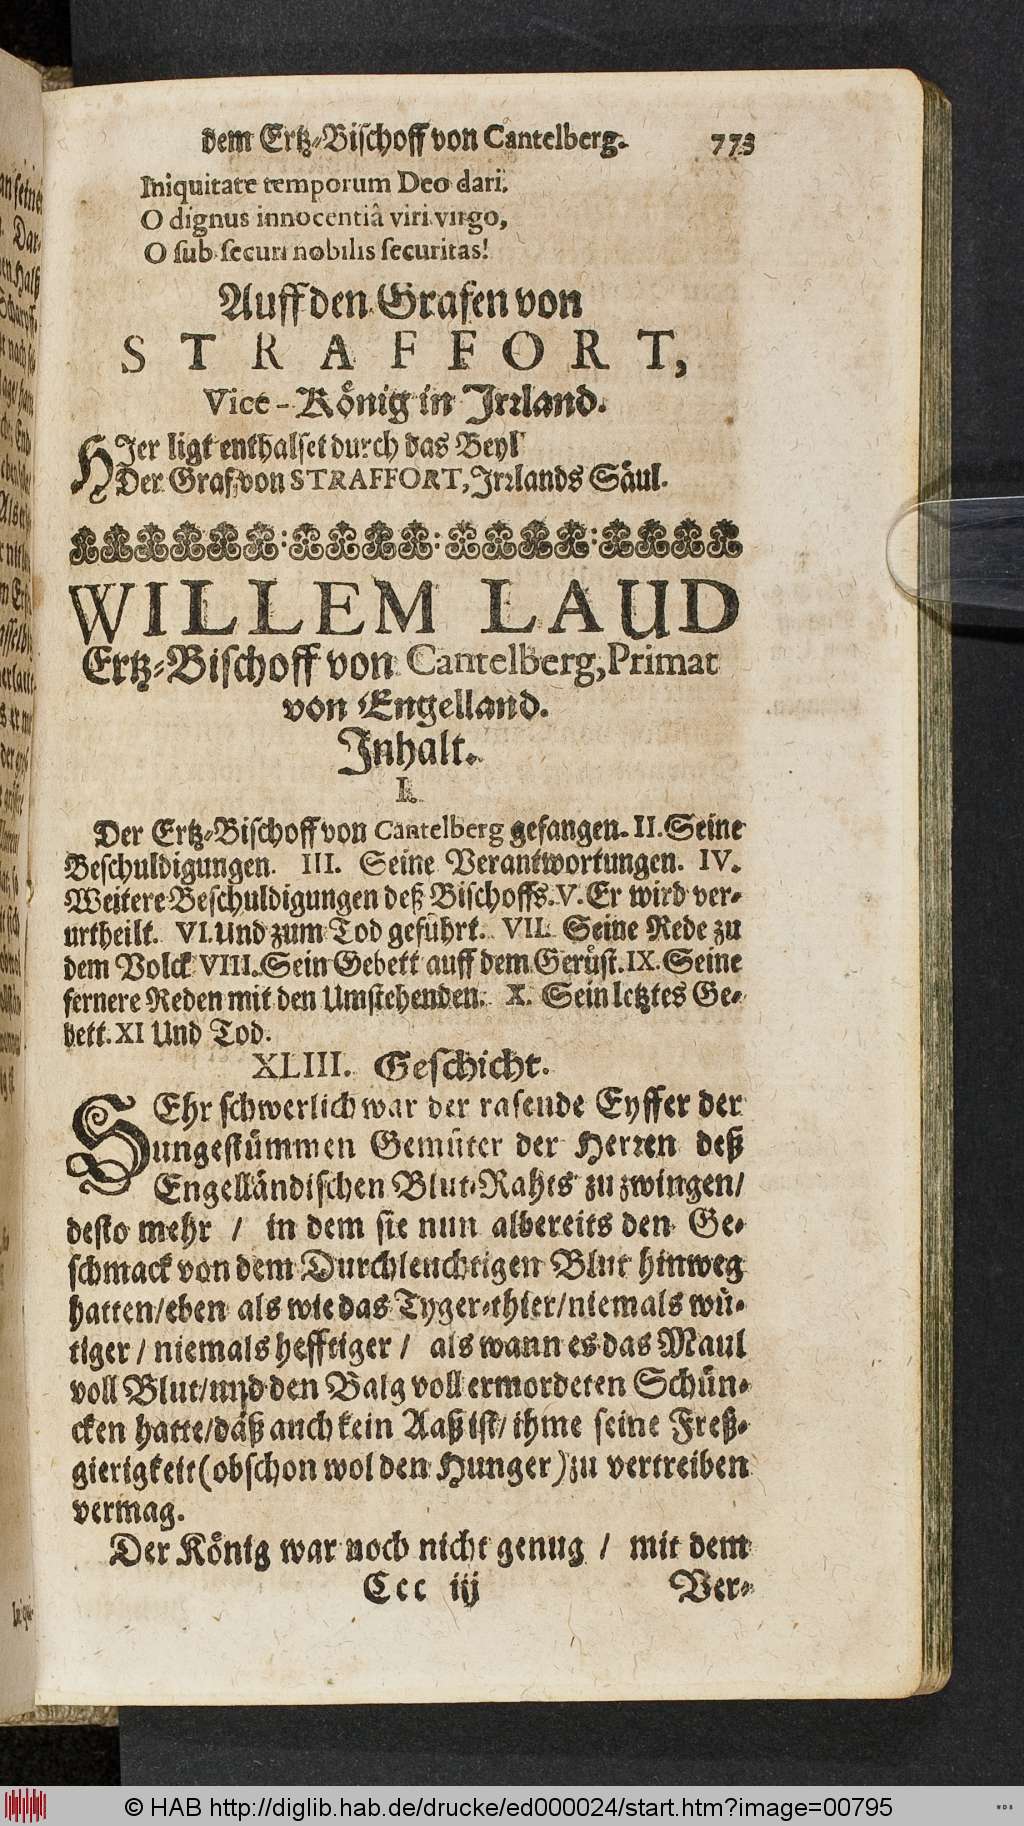 dem Ertz-Bischoff von Cantelberg. 773
Iniquitate temporum Deo dari.
O dignus innocentiâ viri virgo,
O sub securi nobilis securitas!
Auff den Grafen von
STRAFFORT,
Vice-König in Irrland.
HJer ligt enthalset durch das Beyl
Der Graf von STRAFFORT, Irrlands Säul.
WILLEM LAUD
Ertz-Bischoff von Cantelberg, Primat
von Engelland.
Inhalt.
I.
Der Ertz-Bischoff von Cantelberg gefangen. II. Seine
Beschuldigungen. III. Seine Verantwortungen. IV.
Weitere Beschuldigungen deß Bischoffs. V. Er wird ver-
urtheilt. VI. Und zum Tod geführt. VII. Seine Rede zu
dem Volck VIII. Sein Gebett auff dem Gerüst. IX. Seine
fernere Reden mit den Umstehenden. X. Sein letztes Ge-
bett. XI Und Tod.
XLIII. Geschicht.
SEhr schwerlich war der rasende Eyffer der
ungestümmen Gemüter der Herren deß
Engelländischen Blut-Rahts zu zwingen/
desto mehr / in dem sie nun albereits den Ge-
schmack von dem Durchleuchtigen Blut hinweg
hatten/eben als wie das Tyger-thier/niemals wü-
tiger / niemals hefftiger / als wann es das Maul
voll Blut/und den Balg voll ermordeten Schün-
cken hatte/daß auch kein Aaß ist/ ihme seine Freß-
gierigkeit (obschon wol den Hunger) zu vertreiben
vermag.
Der König war noch nicht genug / mit dem
Ccc iij Ver-
© HAB http://diglib.hab.de/drucke/ed000024/start.htm?image=00795